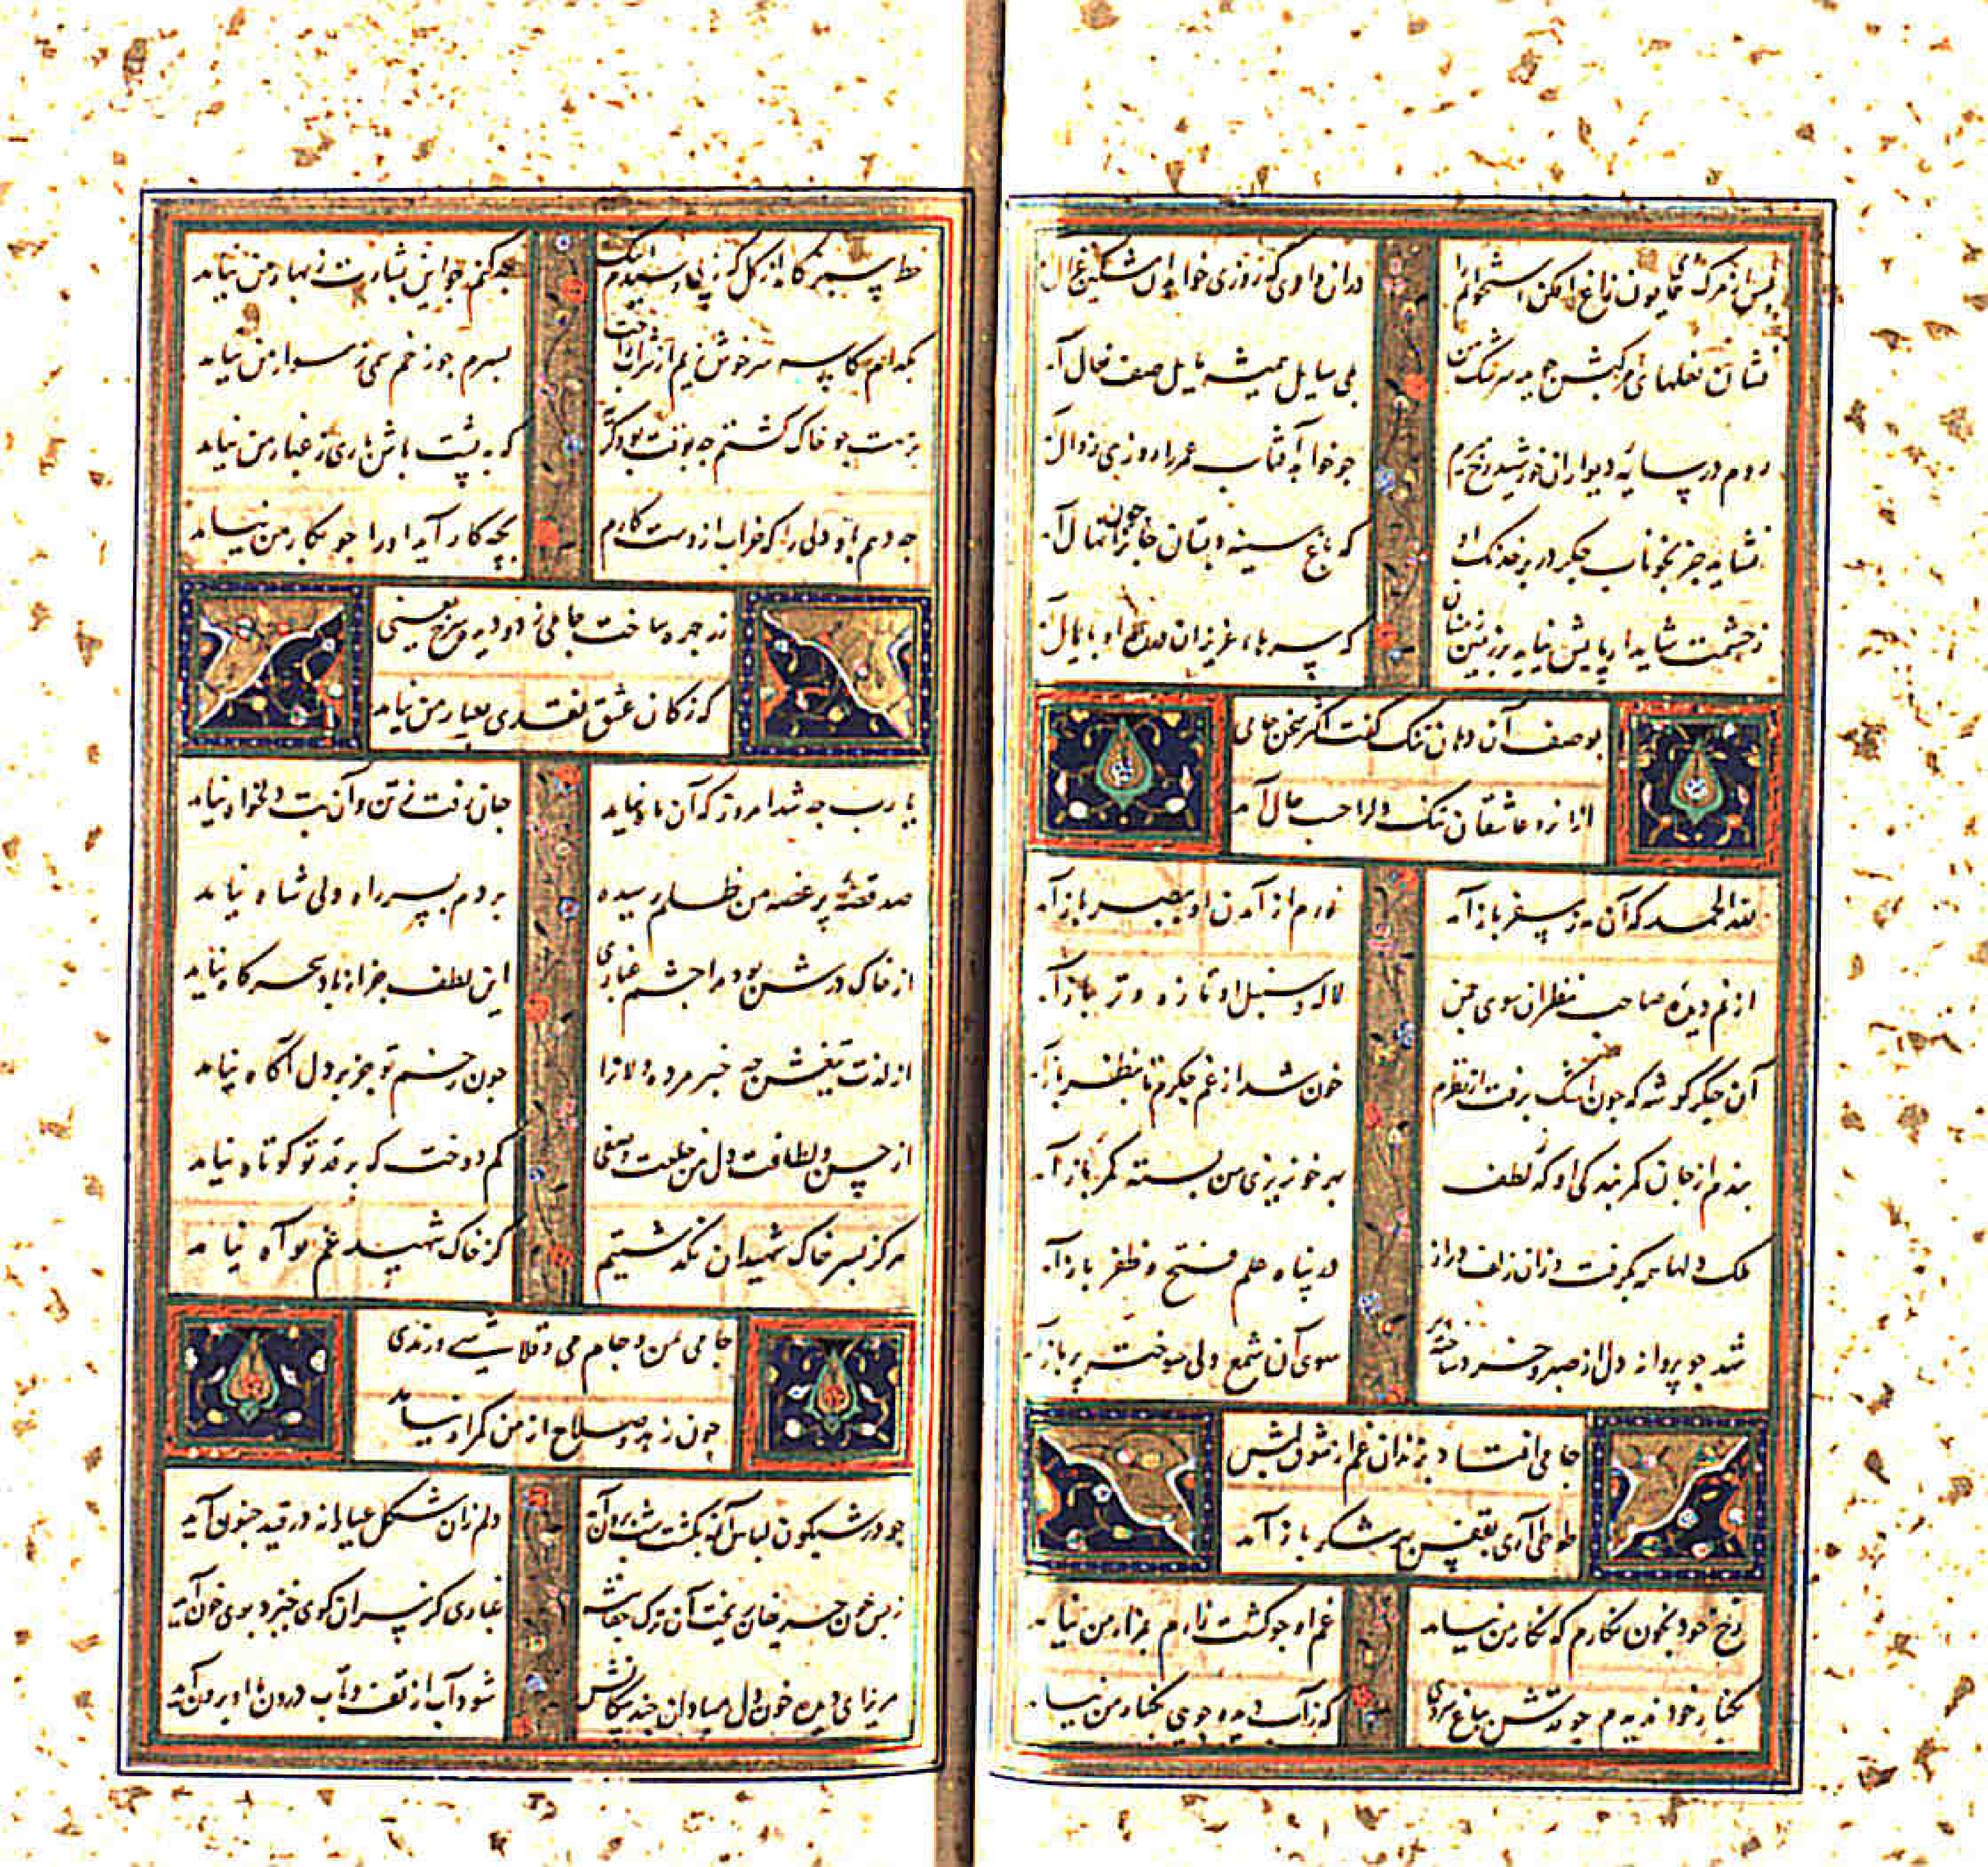 پس از مرگ ای همایون زاغ افکن استخوانم را دران وادی که روزی خواهد آن مشکین غزال آمد
نشان نعلهای مرکبش جوید سرشک من بلی سایل همیشه مایل صف نعال آمد
روم در سایه دیوار ان خورشید رخ میرم جو خواهد آفتاب عمر را روزی زوال آمد
نشاید جز بخوناب جکر درید خدنک او که باغ سینه و بستان جانرا جون نهال آمد
زحشمت شاید ار پایش نیاید بر زمین زینسان که سرهاء عزیزان در رخ او پایمال آمد
بوصف آن دهان تنک کفت اکثر سخن جامی
ازانرو عاشقان تنک دلرا حسب حال آمد
لله الحمد که آن مه ز سفر باز آمد نورم از آمدن او ببصر باز آمد
از نم دیده صاحب نظران سوی جمن لاله و سنبل او تازه و تر باز آمد
آن جکر کوشه که جون اشک برفت از نظرم خون شد از غم جکرم تا بنظر باز آمد
بندم از جان کمر بندکی او که ز لطف بهر خونریزی من بسته کمر باز آمد
ملک دلها همه بکرفت وزان زلف دراز در پناه علم فتح و ظفر باز آمد
شد جو پروانه دل از صبر و خرد ساخته پر سوی آن شمع ولی سوخته پر باز آمد
جامی افتاد بزندان غم از شوق لبش
طوطی آری بقفس بهر شکر باز آمد
رخ خود بخون نکارم که نکار من نیامد غم او جو کشت زارم بمزار من نیامد
بکنار خود ندیدم جو قدش بباغ سروی که ز آب دیده جویی بکنار من نیامد
خط سبز کامد از کل که ز پی رسیدم اینک جه کنم جو این بشارت ز بهار من نیامد
بکدام کاسه سر خوش زیم از شراب راحت بسرم جو زخم می ز سوار من نیامد
برهت جو خاک کشتم جه بود نت بود کر که به پشت باش باری ز غبار من نیامد
جه دهم باو دلی را که خراب ازوست کارم بچه کار آید او را جو بکار من نیامد
زر جهره ساخت جامی ز دو دیده سرخ یعنی
که ز کان عشق نقدی بعیار من نیامد
یا رب جه شد امروز که آن ماه نیامد جان رفت ز تن و آن بت دلخواه نیامد
صد قصه پر غصه من ظلم رسیده بردم بسر راه ولی شاه نیامد
از خاک درش بود مرا جشم غباری این لطف جز از باد سحر کاه نیامد
از لذت تیغش جه خبر مرده دلانرا جون زخم تو جز بر دل آکاه نیامد
از حسن و لطافت دل من خلعت وصفی کم دوخت که بر قد تو کوتاه نیامد
هرکز بسر خاک شهیدان نکذشتیم کز خاک شهید غم تو آه نیامد
جامی من و جام می و قلاشی و رندی
جون زهد و صلاح از من کمراه نیامد
جو در شبکون لباس آن مه بکشت شب برون آمد دلم زان شکل عیارانه در قید جنون آمد
ز بس خون جسد یفان ریخت آن ترک جفا پیشه غباری کز سر ان کوی خیزد بوی خون آمد
مریز ای دیده خون دل مبادا ان جند پیکانش شود آب از تف و تاب درون با او برون آمد